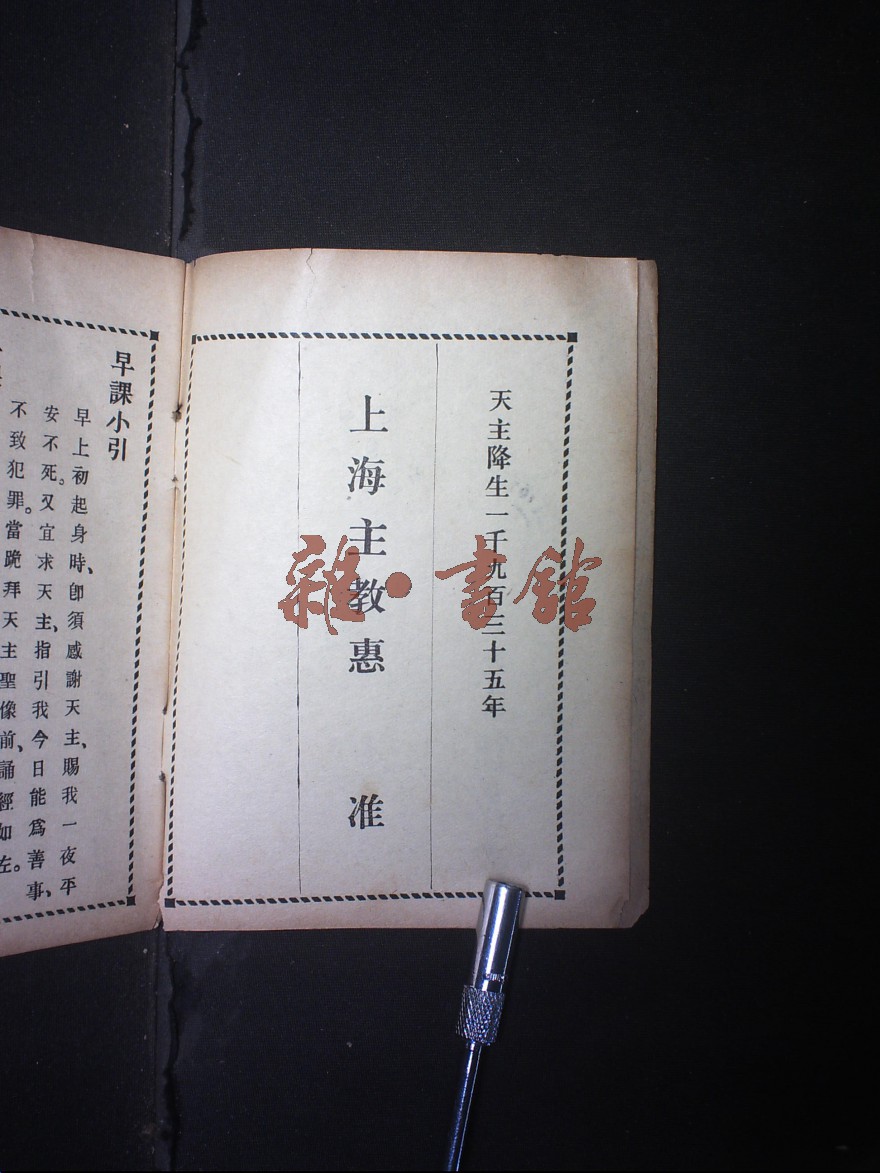 天主降生一千九百三十五年
上海主教惠 准
雜·書館
早課小引
早上初起身時、卽須感謝天主、賜我一夜平
安不死。又宜求天主、指引我今日能爲善事、
不致犯罪。當跪拜天主聖像前、誦經如左。